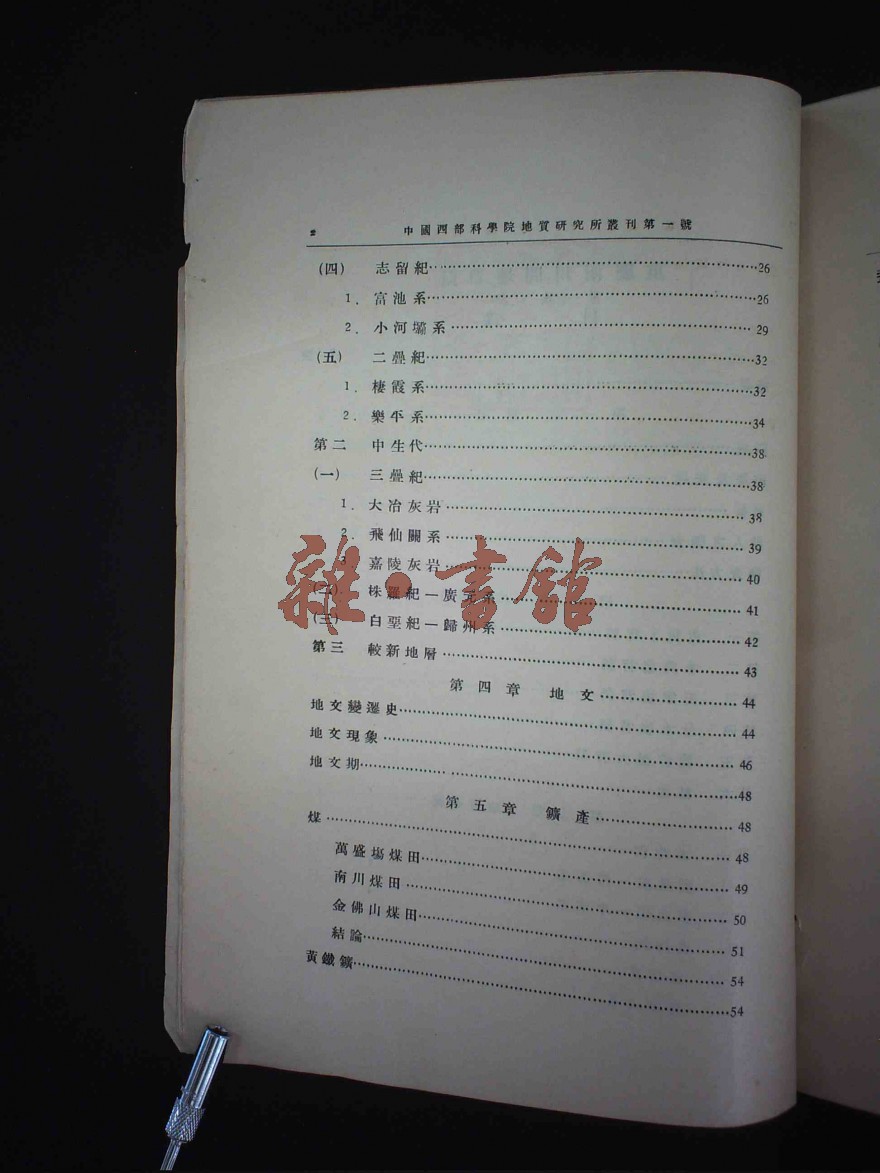 2 中國西部科學院地質研究所叢刊第一號
(四) 志留紀 26
1. 富池系 26
2. 小河壩系 29
(五) 二疊紀 32
1. 棲霞系 32
2. 樂平系 34
第二 中生代 38
(一) 三疊紀 38
1. 大冶灰岩 38
2. 飛仙關系 39
3. 嘉陵灰岩 40
(二) 侏羅紀—廣元系 41
(三) 白堊紀—歸州系 42
第三 較新地層 43
第四章 地文 44
地文變遷史 44
地文現象 46
地文期 48
第五章 鑛產 48
煤 48
萬盛塲煤田 49
南川煤田 50
金佛山煤田 51
結論 54
黃鐵鑛 54
雜·書館